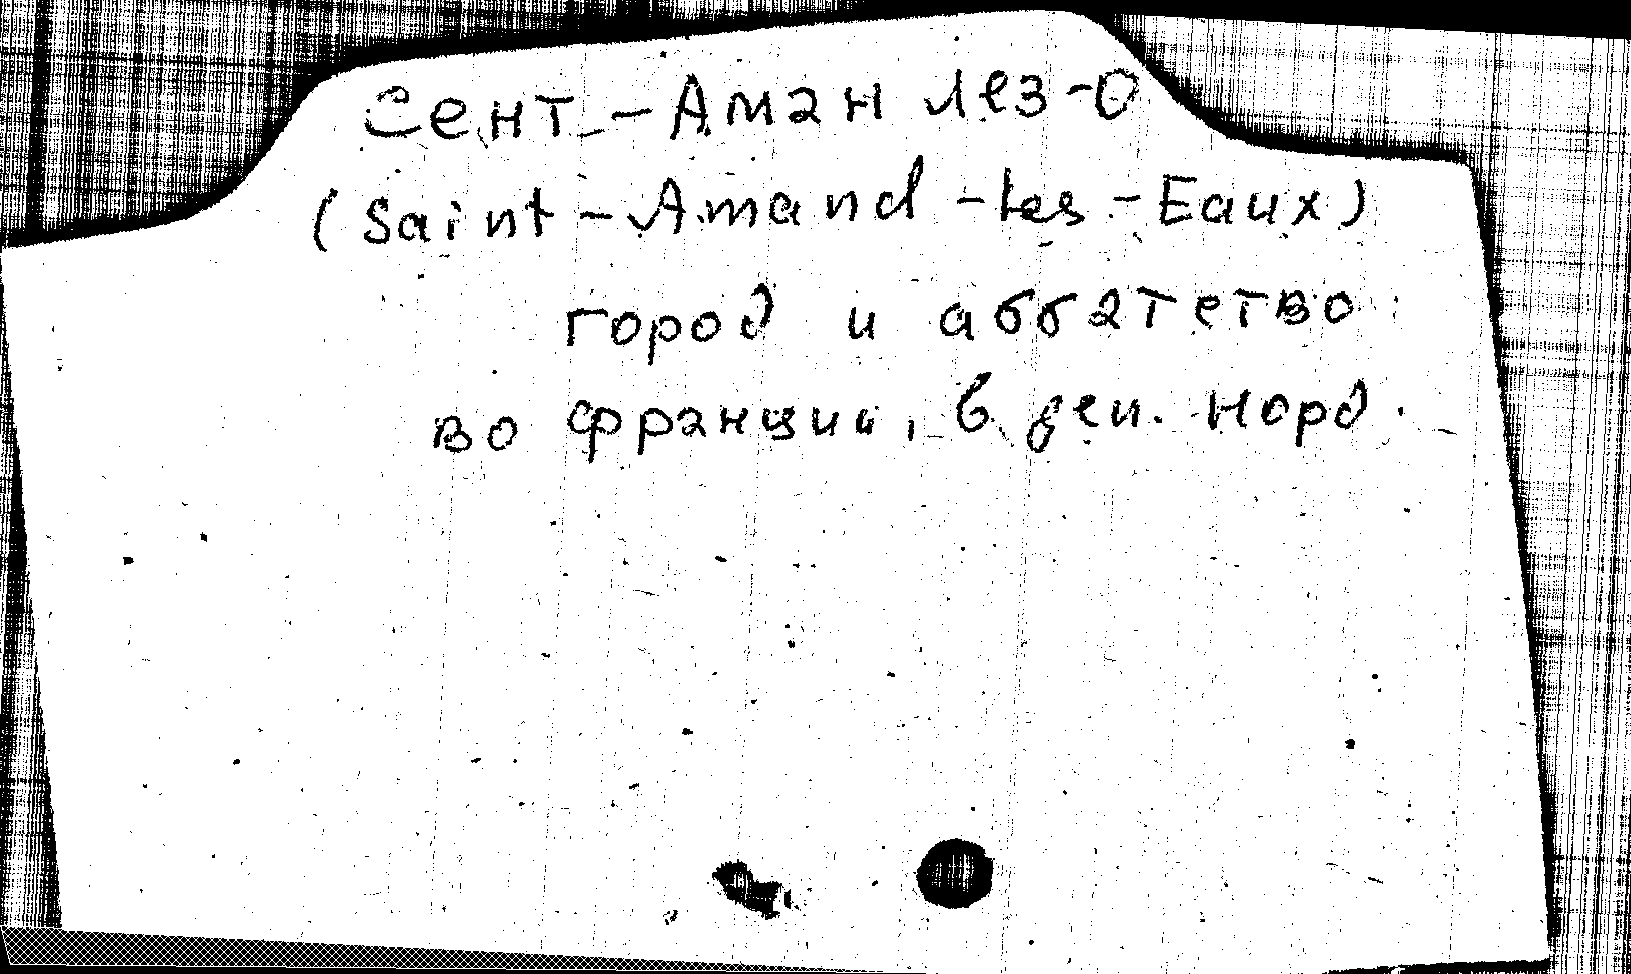 Сент-Аман лез-О
(Saint-Amand-les-Eaux)
город и аббатство
во франции, в деп. Норд.